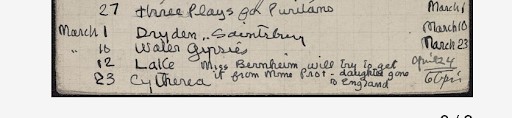 27 Three Plays for Puritans March 1
March 1 Dryden, Saintsbury March 10
" 10 Water Gypsies March 23
12 Lake Miss Bernheim will try to get April 24
it from Mme Prot - daughter gone
23 Cytherea to England 6 Apri